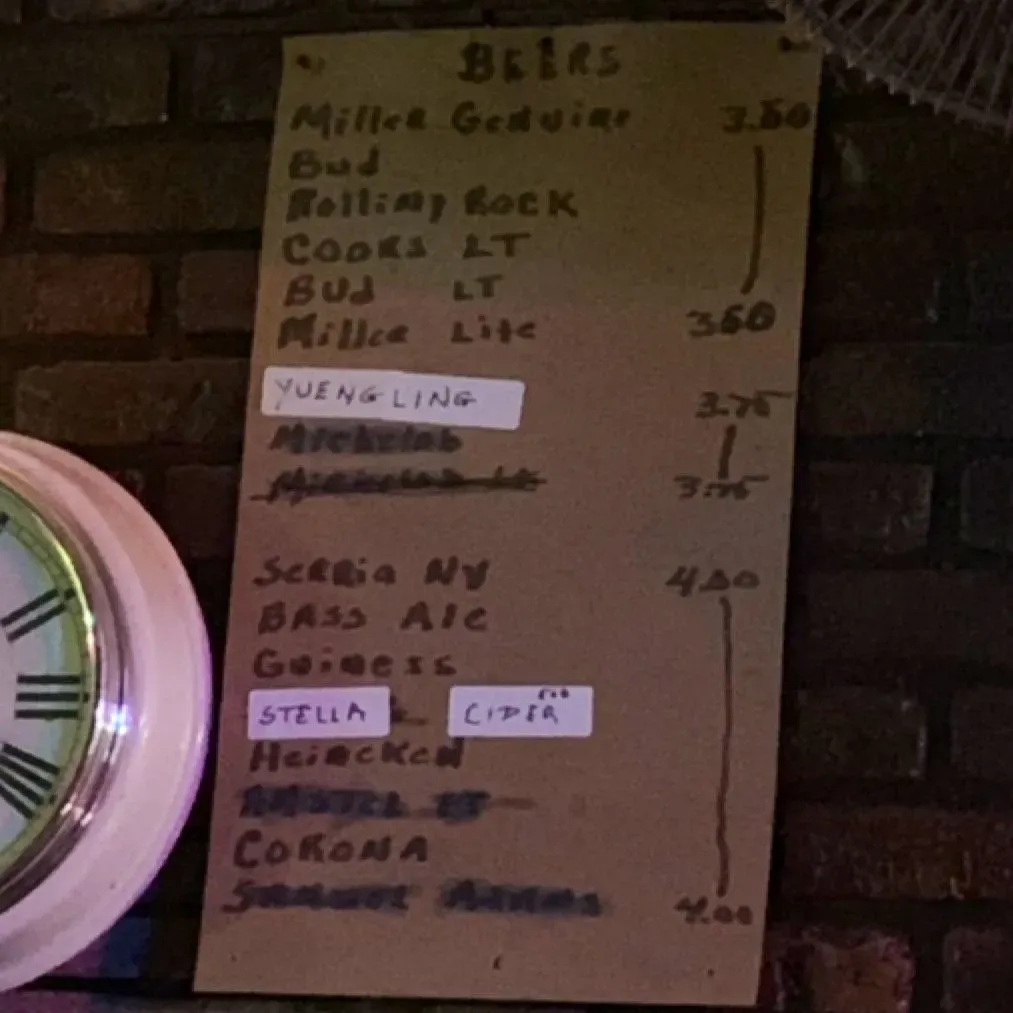 BEERS
Miller Genuine 3.50
Bud
Rolling Rock
COORS LT
BUd LT
Miller Lite 3.50
YUENGLING 3.75
Michelob
Michelob LT 3.75
Serria NV 4.00
BASS Ale
Guiness
STELLA CIDER
Heineken
AMSTEL LT
CORONA
Samuel Adams 4.00